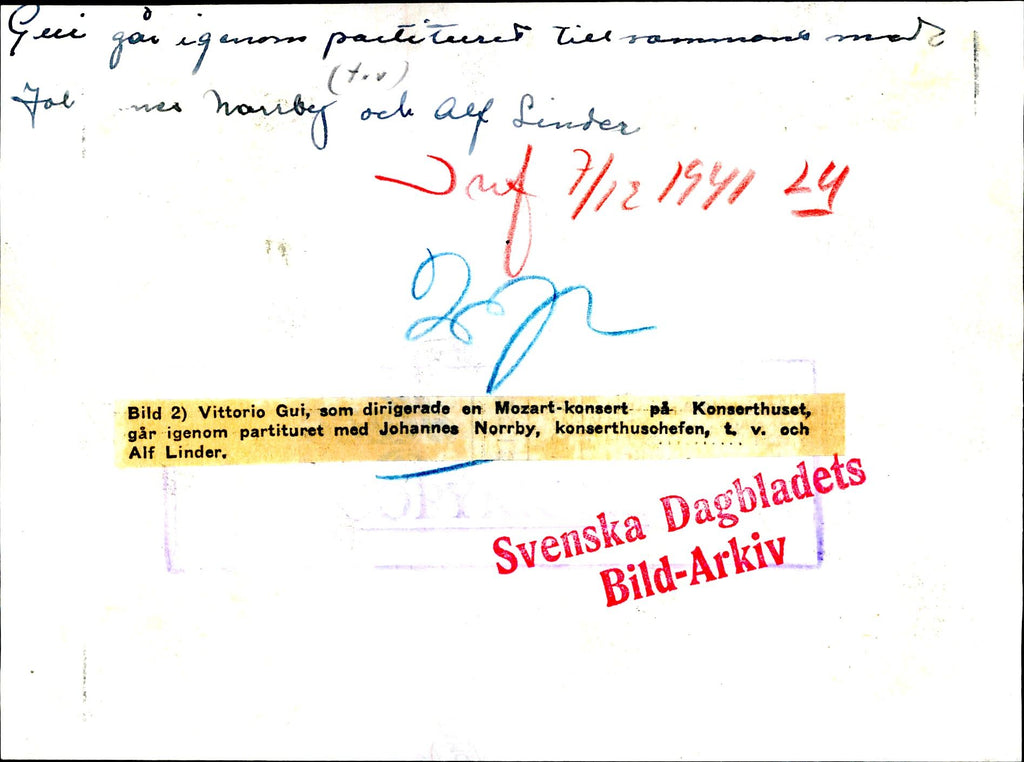 Gui går igenom partituret tillsammans med
(t.v)
Joh nes Norrby och Alf Linder
Inf 7/12 1941 24
Bild 2) Vittorio Gui, som dirigerade en Mozart-konsert på Konserthuset,
går igenom partituret med Johannes Norrby, konserthuschefen, t. v. och
Alf Linder.
Svenska Dagbladets
Bild-Arkiv